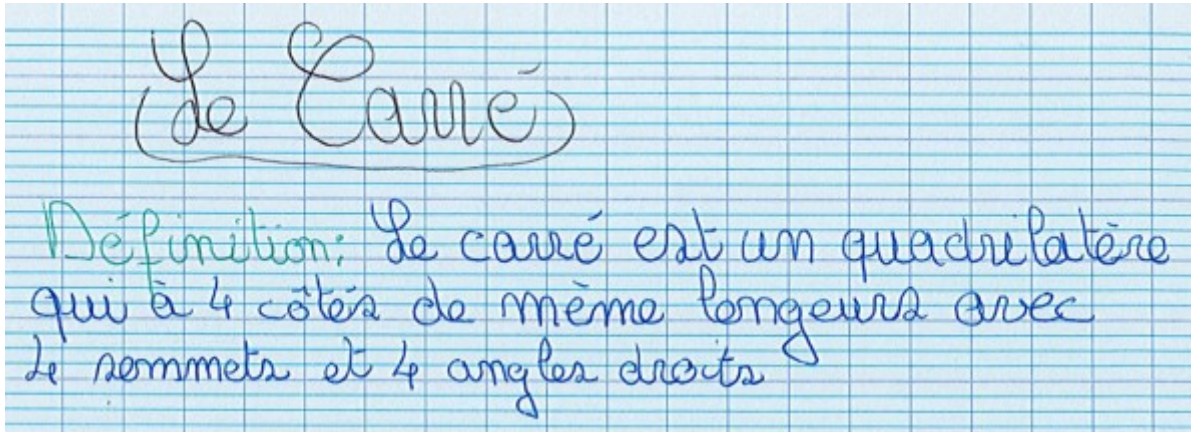 Le Carré
Définition: Le carré est un quadrilatère
qui à 4 côtés de mème longeurs avec
4 sommets et 4 angles droits